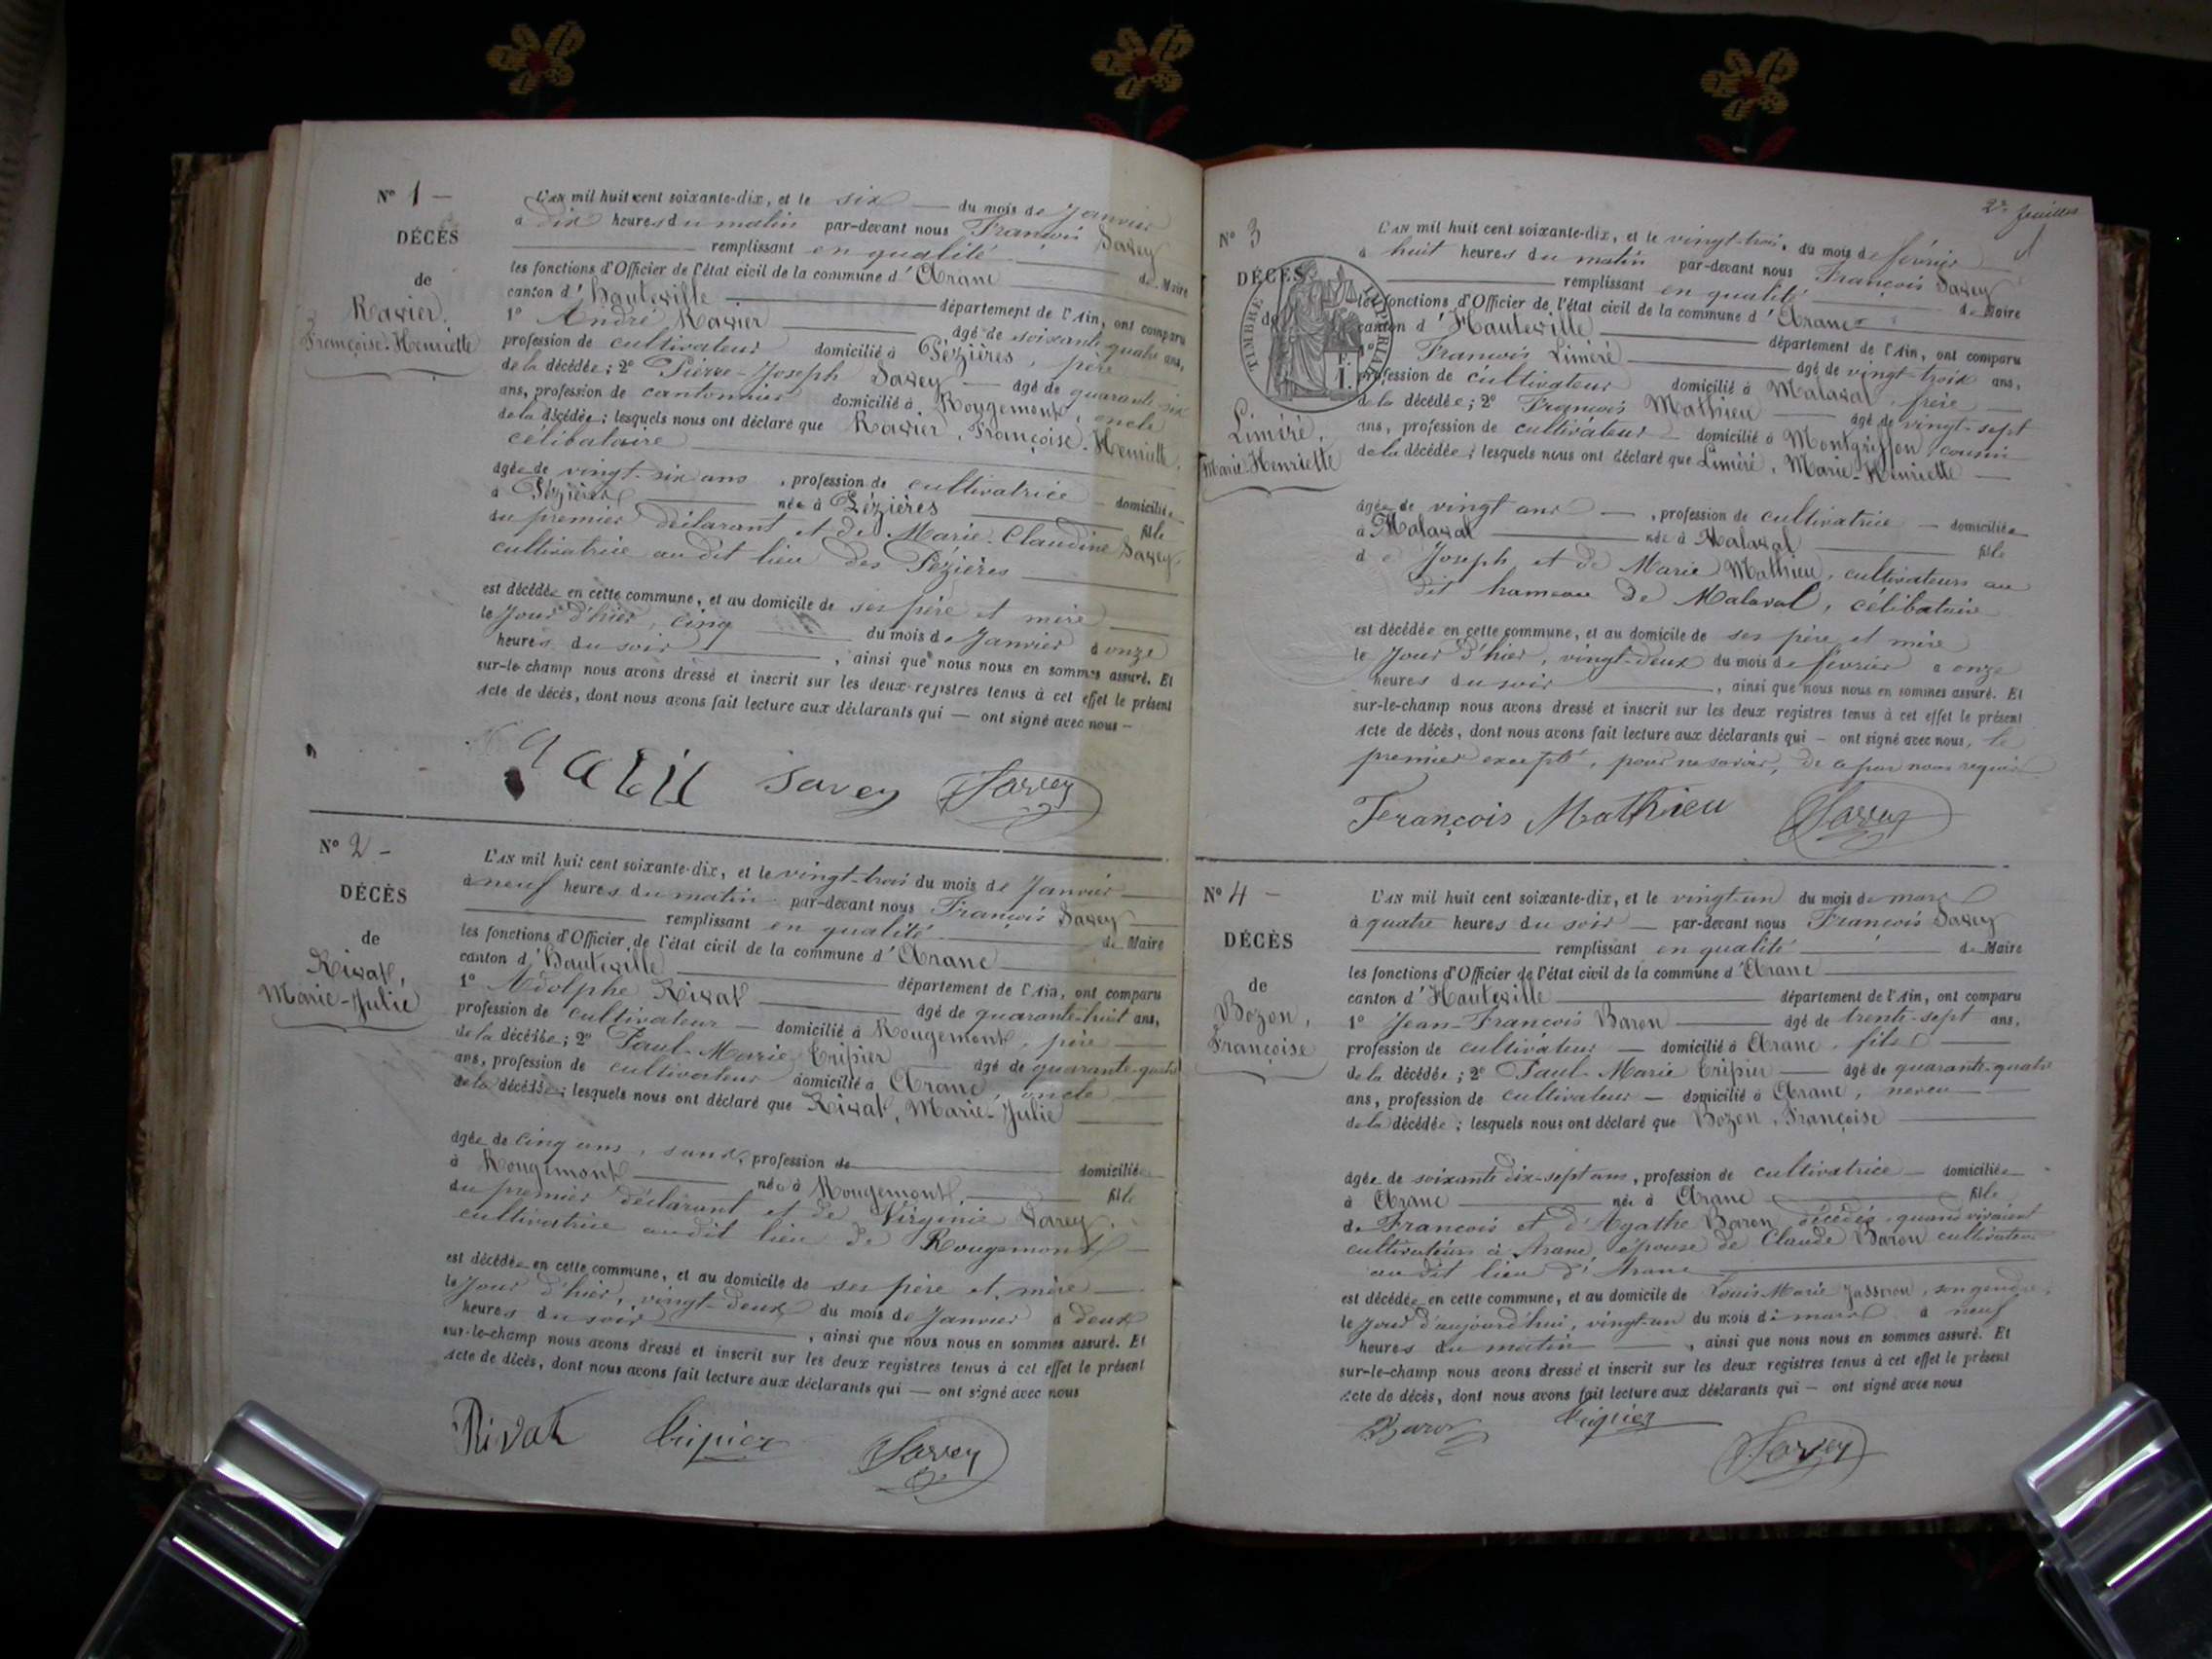 N° 1 —
DÉCÈS
de
Ravier,
Françoise-Henriette
L'AN mil huit cent soixante-dix, et le six — du mois de Janvier
à dix heures du matin par-devant nous François Savey
remplissant en qualité de Maire
les fonctions d'Officier de l'état civil de la commune d'Aranc
canton d'Hauteville — département de l'Ain, ont comparu
1° André Ravier — âgé de soixante quatre ans,
profession de cultivateur domicilié à Pézières, père
de la décédée; 2° Pierre-Joseph Savey — âgé de quarante-six
ans, profession de cantonnier domicilié à Rougemont, oncle
de la décédée; lesquels nous ont déclaré que Ravier, Françoise-Henriette,
célibataire
âgée de vingt-six ans, profession de cultivatrice — domiciliée
à Pézières — née à Pézières — fille
du premier déclarant et de Marie-Claudine Savey,
cultivatrice au dit lieu des Pézières
est décédée en cette commune, et au domicile de ses père et mère
le jour d'hier, cinq du mois de Janvier à onze
heures du soir, ainsi que nous nous en sommes assuré. Et
sur-le-champ nous avons dressé et inscrit sur les deux registres tenus à cet effet le présent
Acte de décès, dont nous avons fait lecture aux déclarants qui — ont signé avec nous —
Savey Savey
N° 2 —
DÉCÈS
de
Rivat,
Marie-Julie
L'AN mil huit cent soixante-dix, et le vingt-trois du mois de Janvier
à neuf heures du matin par-devant nous François Savey
remplissant en qualité de Maire
les fonctions d'Officier de l'état civil de la commune d'Aranc
canton d'Hauteville — département de l'Ain, ont comparu
1° Adolphe Rivat — âgé de quarante-huit ans,
profession de cultivateur — domicilié à Rougemont, père
de la décédée; 2° Paul-Marie Tripier âgé de quarante-quatre
ans, profession de cultivateur domicilié à Aranc, oncle
de la décédée; lesquels nous ont déclaré que Rivat, Marie-Julie
âgée de cinq ans, sans, profession de — domiciliée
à Rougemont — née à Rougemont, — fille
du premier déclarant et de Virginie Savey,
cultivatrice audit lieu de Rougemont
est décédée en cette commune, et au domicile de ses père et mère
le jour d'hier, vingt-deux du mois de Janvier à deux
heures du soir, ainsi que nous nous en sommes assuré. Et
sur-le-champ nous avons dressé et inscrit sur les deux registres tenus à cet effet le présent
Acte de décès, dont nous avons fait lecture aux déclarants qui — ont signé avec nous
Rivat Tripier Savey
2e feuillet
N° 3
DÉCÈS
de
TIMBRE IMPERIAL
Liméré,
Marie-Henriette
L'AN mil huit cent soixante-dix, et le vingt-trois du mois de février
à huit heures du matin par-devant nous François Savey
remplissant en qualité de Maire
les fonctions d'Officier de l'état civil de la commune d'Aranc
canton d'Hauteville — département de l'Ain, ont comparu
1° François Liméré — âgé de vingt-trois ans,
profession de cultivateur domicilié à Malaval, frère
de la décédée; 2° François Mathieu — âgé de vingt-sept
ans, profession de cultivateur — domicilié à Montgriffon, cousin
de la décédée; lesquels nous ont déclaré que Liméré, Marie-Henriette —
âgée de vingt ans —, profession de cultivatrice — domiciliée
à Malaval — née à Malaval — fille
de Joseph et de Marie Mathieu, cultivateurs au
dit hameau de Malaval, célibataire
est décédée en cette commune, et au domicile de ses père et mère
le jour d'hier, vingt-deux du mois de février à onze
heures du soir, ainsi que nous nous en sommes assuré. Et
sur-le-champ nous avons dressé et inscrit sur les deux registres tenus à cet effet le présent
Acte de décès, dont nous avons fait lecture aux déclarants qui — ont signé avec nous, le
premier excepté, pour ne savoir, de ce par nous requis
François Mathieu Savey
N° 4 —
DÉCÈS
de
Bozon,
Françoise
L'AN mil huit cent soixante-dix, et le vingt-un du mois de mars
à quatre heures du soir — par-devant nous François Savey
remplissant en qualité de Maire
les fonctions d'Officier de l'état civil de la commune d'Aranc
canton d'Hauteville — département de l'Ain, ont comparu
1° Jean-François Baron — âgé de trente-sept ans,
profession de cultivateur — domicilié à Aranc, fils
de la décédée; 2° Paul-Marie Tripier — âgé de quarante-quatre
ans, profession de cultivateur — domicilié à Aranc, neveu
de la décédée; lesquels nous ont déclaré que Bozon, Françoise
âgée de soixante dix-sept ans, profession de cultivatrice — domiciliée
à Aranc — née à Aranc — fille
de François et d'Agathe Baron décédés, quand vivaient
cultivateurs à Aranc, épouse de Claude Baron cultivateur
au dit lieu d'Aranc
est décédée en cette commune, et au domicile de Louis Marie Jasseron, son gendre,
le jour d'aujourd'hui, vingt-un du mois de mars à neuf
heures du matin —, ainsi que nous nous en sommes assuré. Et
sur-le-champ nous avons dressé et inscrit sur les deux registres tenus à cet effet le présent
Acte de décès, dont nous avons fait lecture aux déclarants qui — ont signé avec nous
Baron Tripier Savey